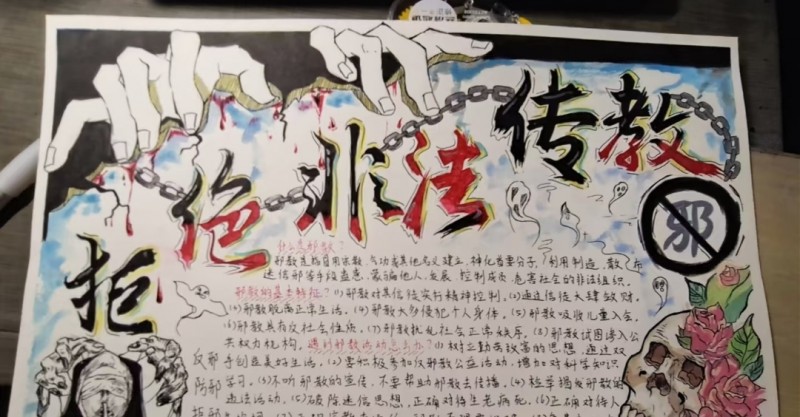 拒绝非法传教
邪
什么是邪教？
邪教是指冒用宗教、气功或其他名义建立，神化首要分子，利用制造、散布
迷信邪说等手段蛊惑、蒙骗他人，发展、控制成员，危害社会的非法组织。
邪教的基本特征？(1)邪教对其信徒实行精神控制，(2)邀信徒大肆敛财
(3)邪教脱离正常生活。(4)邪教大多侵犯个人身体。(5)邪教吸收儿童入会。
(6)邪教具有反社会性质。(7)邪教扰乱社会正常秩序。(8)邪教试图渗入公
共权力机构。遇到邪教活动怎么办？(1)树立勤劳致富的思想，通过双
手创造美好生活。(2)要积极参加反邪教公益活动，增加对科学知识
学习。(3)不听邪教的宣传，不要帮助邪教去传播。(4)检举揭发邪教的
违法活动。(5)破除迷信思想，正确对待生老病死。(6)正确对待人
反邪
防邪